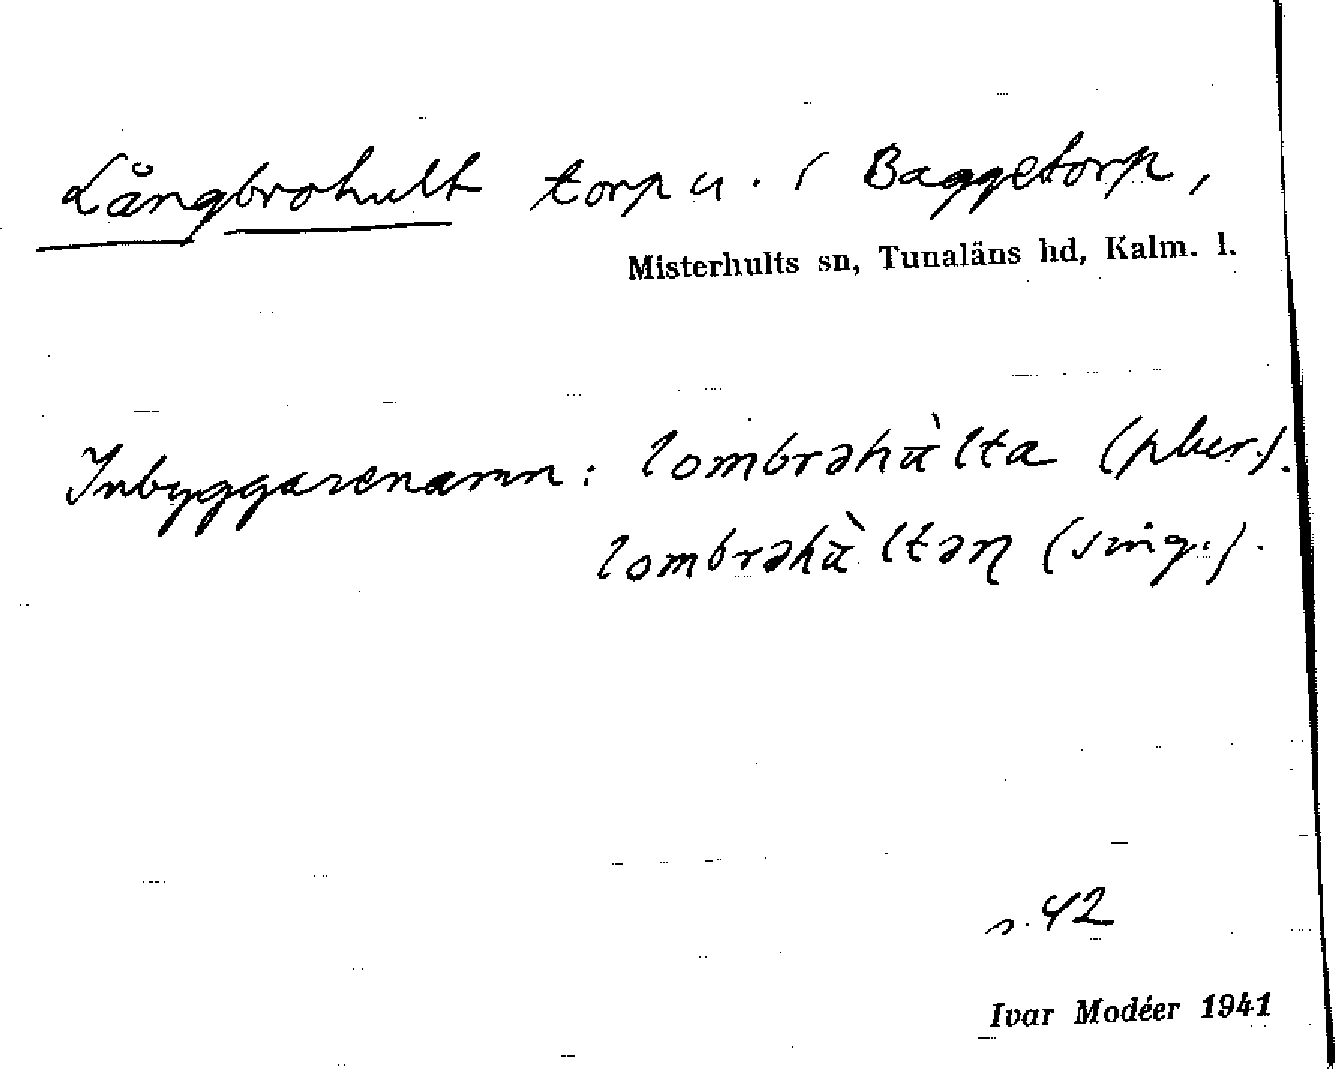 Långbrohult torp u. i Baggetorp,
Misterhults sn, Tunaläns hd, Kalm. l.
Inbyggarenamn: lombrəhù̈lta (plur.).
lombrəhù̈ltəɳ (sing.).
s. 42
Ivar Modéer 1941